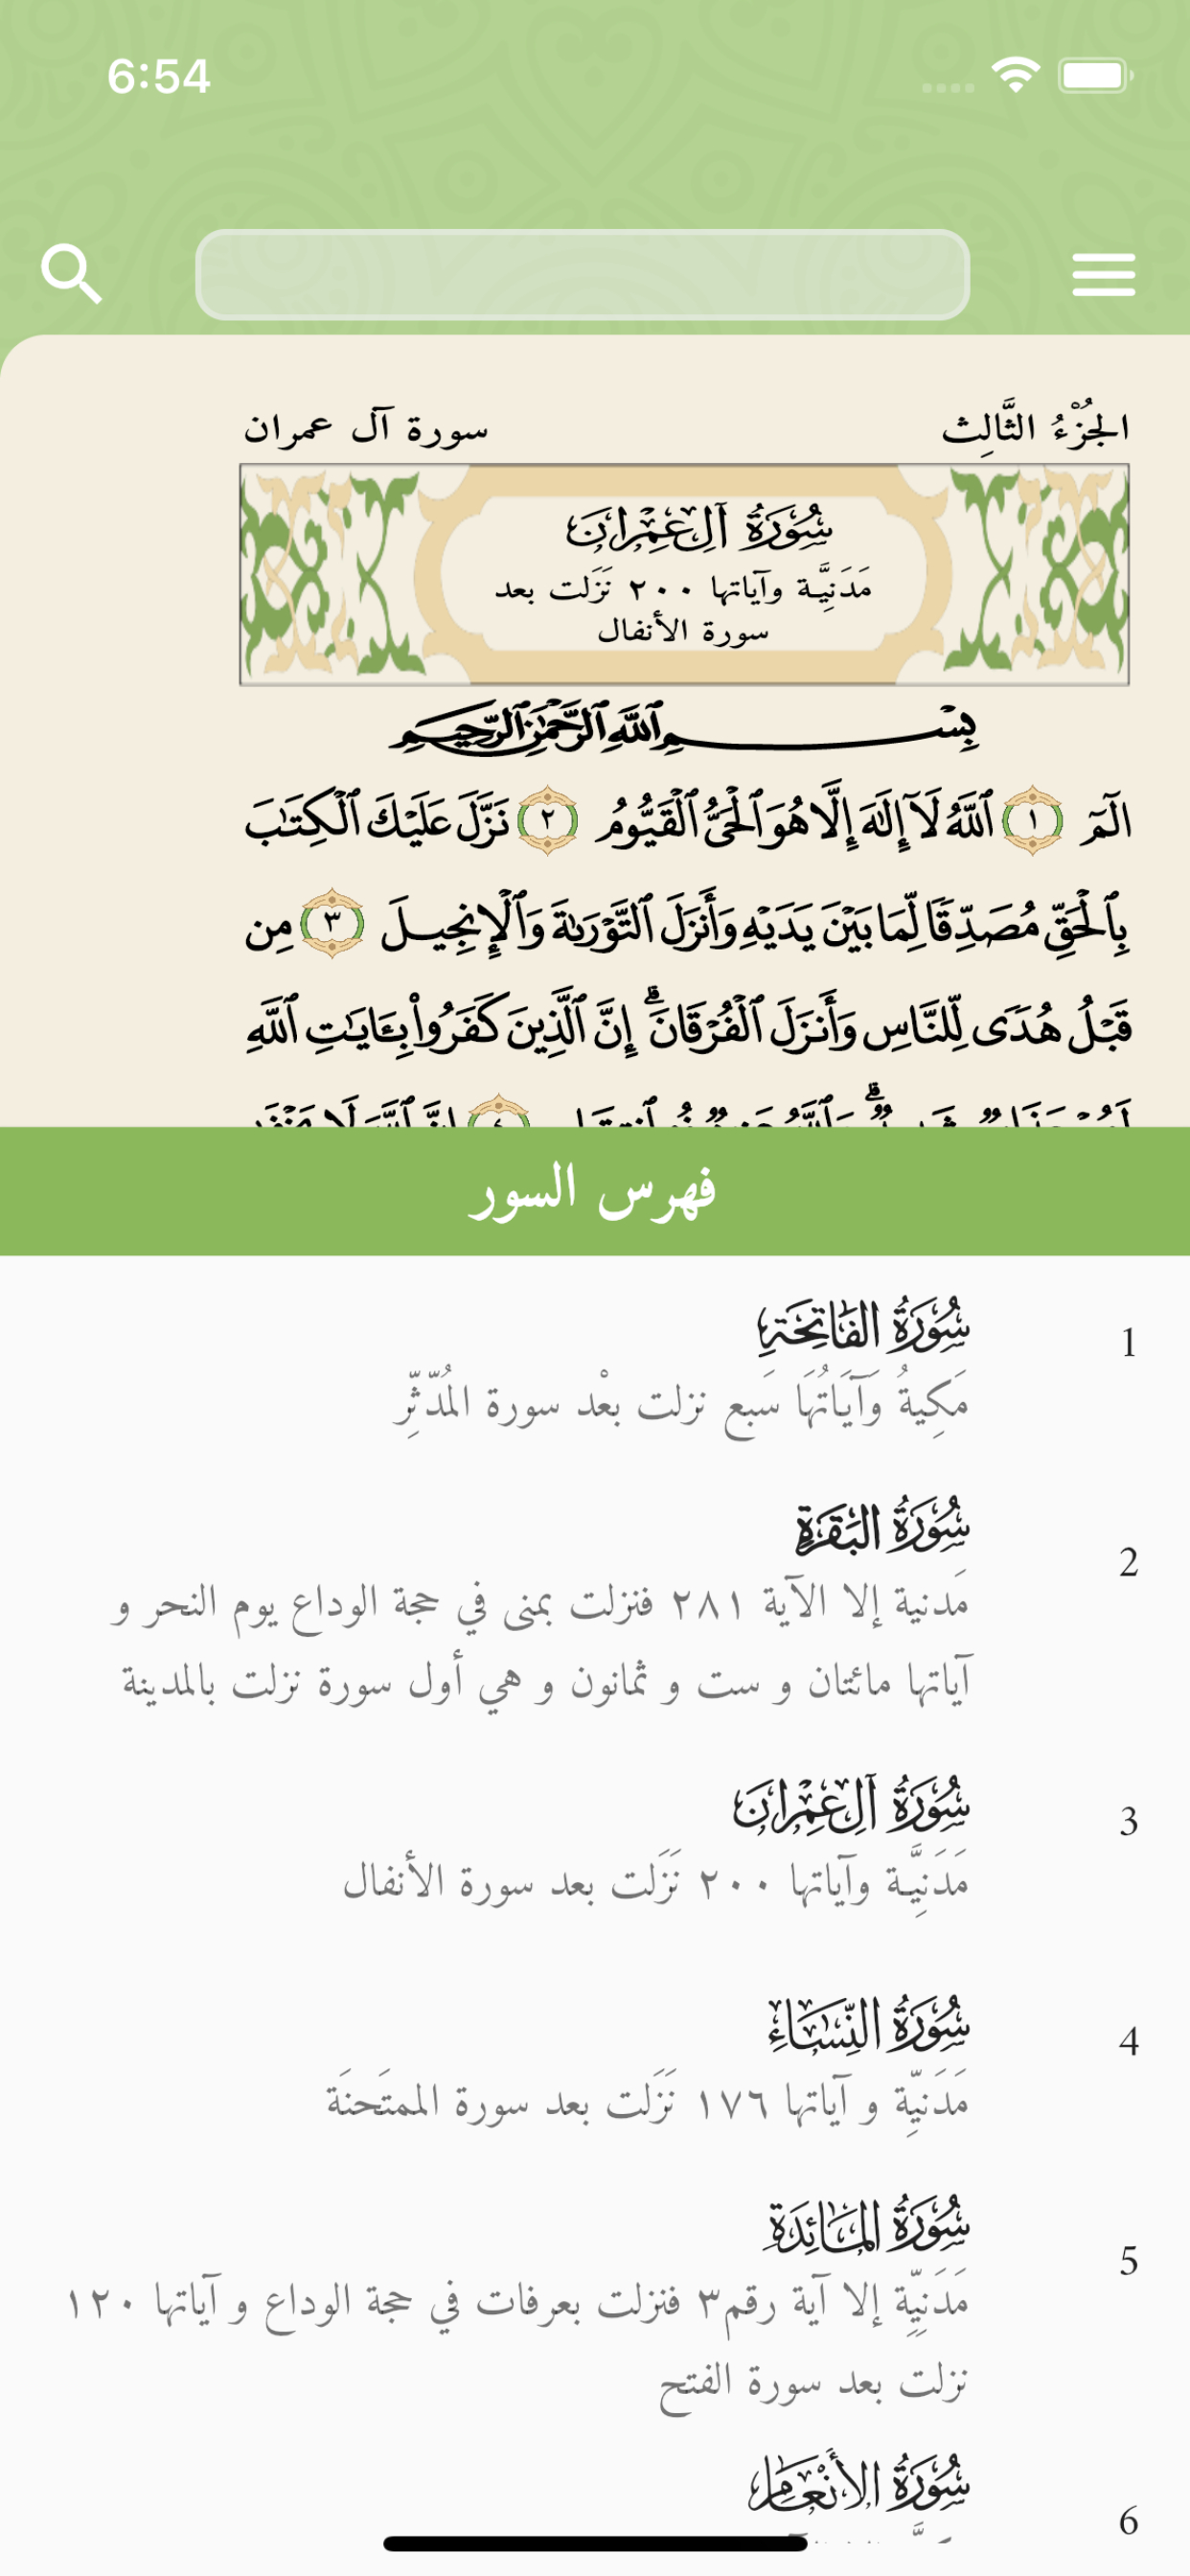 6:54
الجُزْءُ الثَّالِث
سورة آل عمران
سُورَةُ آلِ عِمْرَان
مَدَنِيَّة وآياتها ٢٠٠ نَزَلت بعد
سورة الأنفال
بِسْمِ ٱللَّهِ ٱلرَّحْمَٰنِ ٱلرَّحِيمِ
الٓمٓ ١ ٱللَّهُ لَآ إِلَٰهَ إِلَّا هُوَ ٱلْحَىُّ ٱلْقَيُّومُ ٢ نَزَّلَ عَلَيْكَ ٱلْكِتَٰبَ
بِٱلْحَقِّ مُصَدِّقًا لِّمَا بَيْنَ يَدَيْهِ وَأَنزَلَ ٱلتَّوْرَىٰةَ وَٱلْإِنجِيلَ ٣ مِن
قَبْلُ هُدًى لِّلنَّاسِ وَأَنزَلَ ٱلْفُرْقَانَ ۗ إِنَّ ٱلَّذِينَ كَفَرُوا۟ بِـَٔايَٰتِ ٱللَّهِ
فهرس السور
1
سُورَةُ الفَاتِحَةِ
مَكِيةُ وَآيَاتُهَا سَبع نزلت بعْد سورة المُدّثِّر
2
سُورَةُ البَقَرَةِ
مَدنية إلا الآية ٢٨١ فنزلت بمنى في حجة الوداع يوم النحر و
آياتها مائتان و ست و ثمانون و هي أول سورة نزلت بالمدينة
3
سُورَةُ آلِ عِمْرَان
مَدَنِيَّة وآياتها ٢٠٠ نَزَلت بعد سورة الأنفال
4
سُورَةُ النِّسَاءِ
مَدَنِيّة و آياتها ١٧٦ نَزَلت بعد سورة الممتَحنَة
5
سُورَةُ المَائِدَةِ
مَدَنِيّة إلا آية رقم٣ فنزلت بعرفات في حجة الوداع و آياتها ١٢٠
نزلت بعد سورة الفتح
6
سُورَةُ الأَنْعَامِ